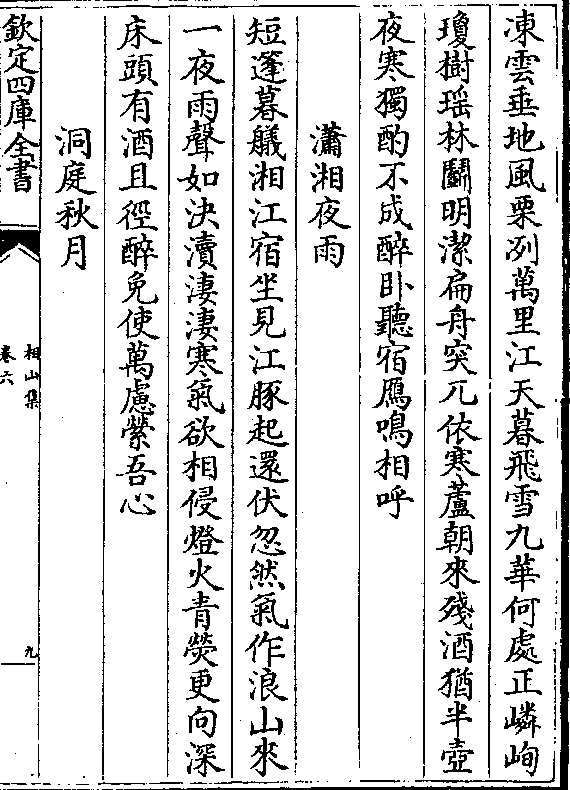 凍雲垂地風栗冽萬里江天暮飛雪九華何處正嶙峋
瓊樹瑶林鬬明潔扁舟突兀依寒蘆朝來殘酒猶半壺
夜寒獨酌不成醉卧聽宿鴈鳴相呼
瀟湘夜雨
短蓬暮艤湘江宿坐見江豚起還伏忽然氣作浪山來
一夜雨聲如決瀆淒淒寒氣欲相侵燈火青熒更向深
床頭有酒且徑醉免使萬慮縈吾心
洞庭秋月
欽定四庫全書
相山集
卷六
九